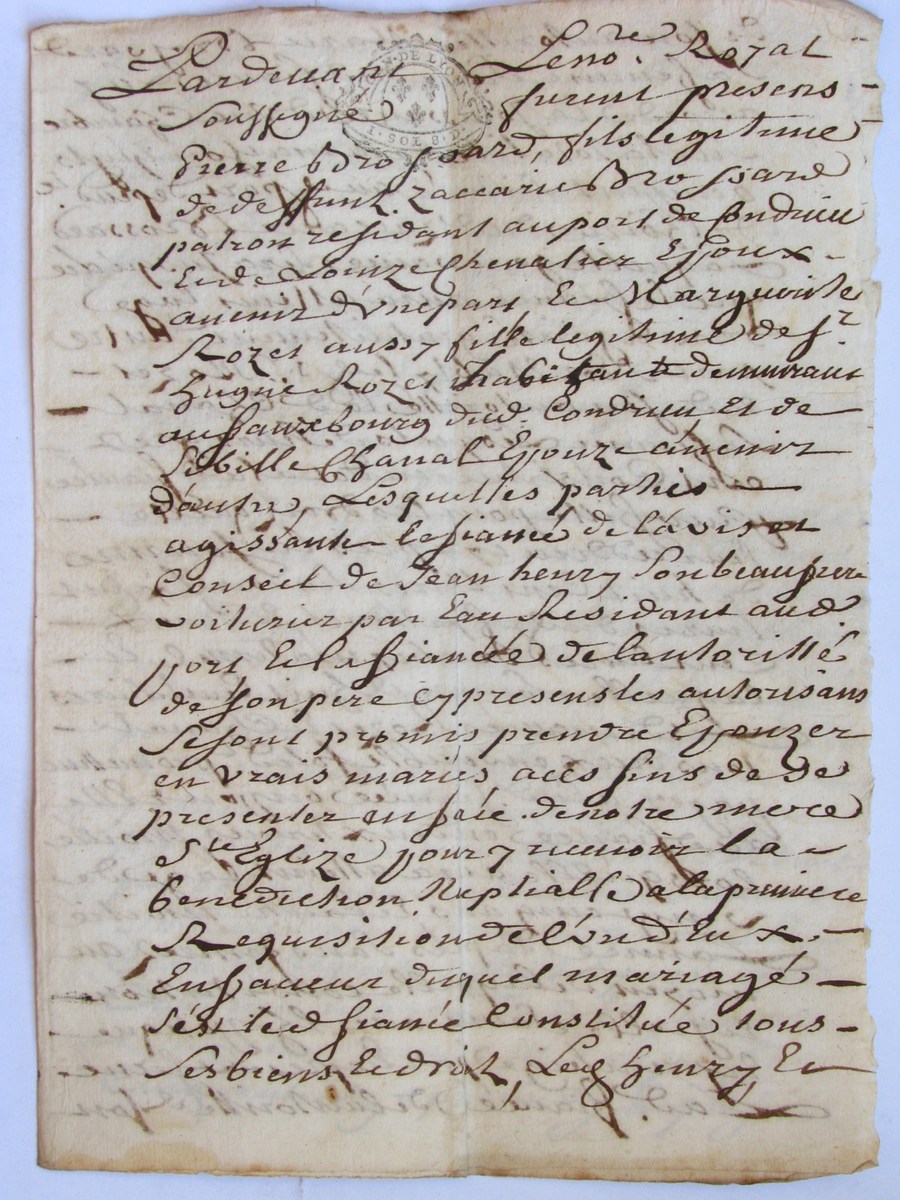 Pardevant Le no.re Royal
Soussigné furent presens
Pierre Brossard, fils legitime
de deffunt Zaccarie Brossard
patron residant au port de Condrieu
Et de Louize Chevalier Epoux
avenir d'une part Et Marguerite
Rozet aussy fille legitime de sr.
hugue Rozet habitant demurant
au fauxbourg dud. Condrieu et de
Sibille Chanal Epouze avenir
d'autre, Lesquelles parties
agissants le fiancé de lavis et
Conseil de Jean henry son beaufrere
voiturier par Eau Residant aud.
port Et la fiancée de lautorité
de son pere cy present les autorisant
se sont promis prendre Epouzer
en vrais mariés a ces fins de se
presenter en face de notre mere
Ste Eglize pour y recevoir la
benediction Nuptialle a la premiere
Requisition de l'un d'Eux
En faveur duquel mariagé
s'est led fiancé Constituée tous
ses biens Et droit, Led henry Et
DE LYON
1. SOL 8. D.